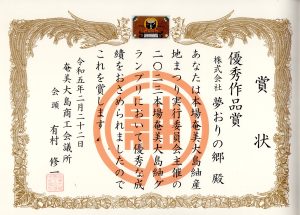 賞状
優秀作品賞
株式会社 夢おりの郷 殿
あなたは本場奄美大島紬産
地まつり実行委員会主催の
二〇二三本場奄美大島紬グ
ランプリにおいて優秀な成
績をおさめられましたので
これを賞します
令和五年二月二十二日
奄美大島商工会議所
会頭 有村修一